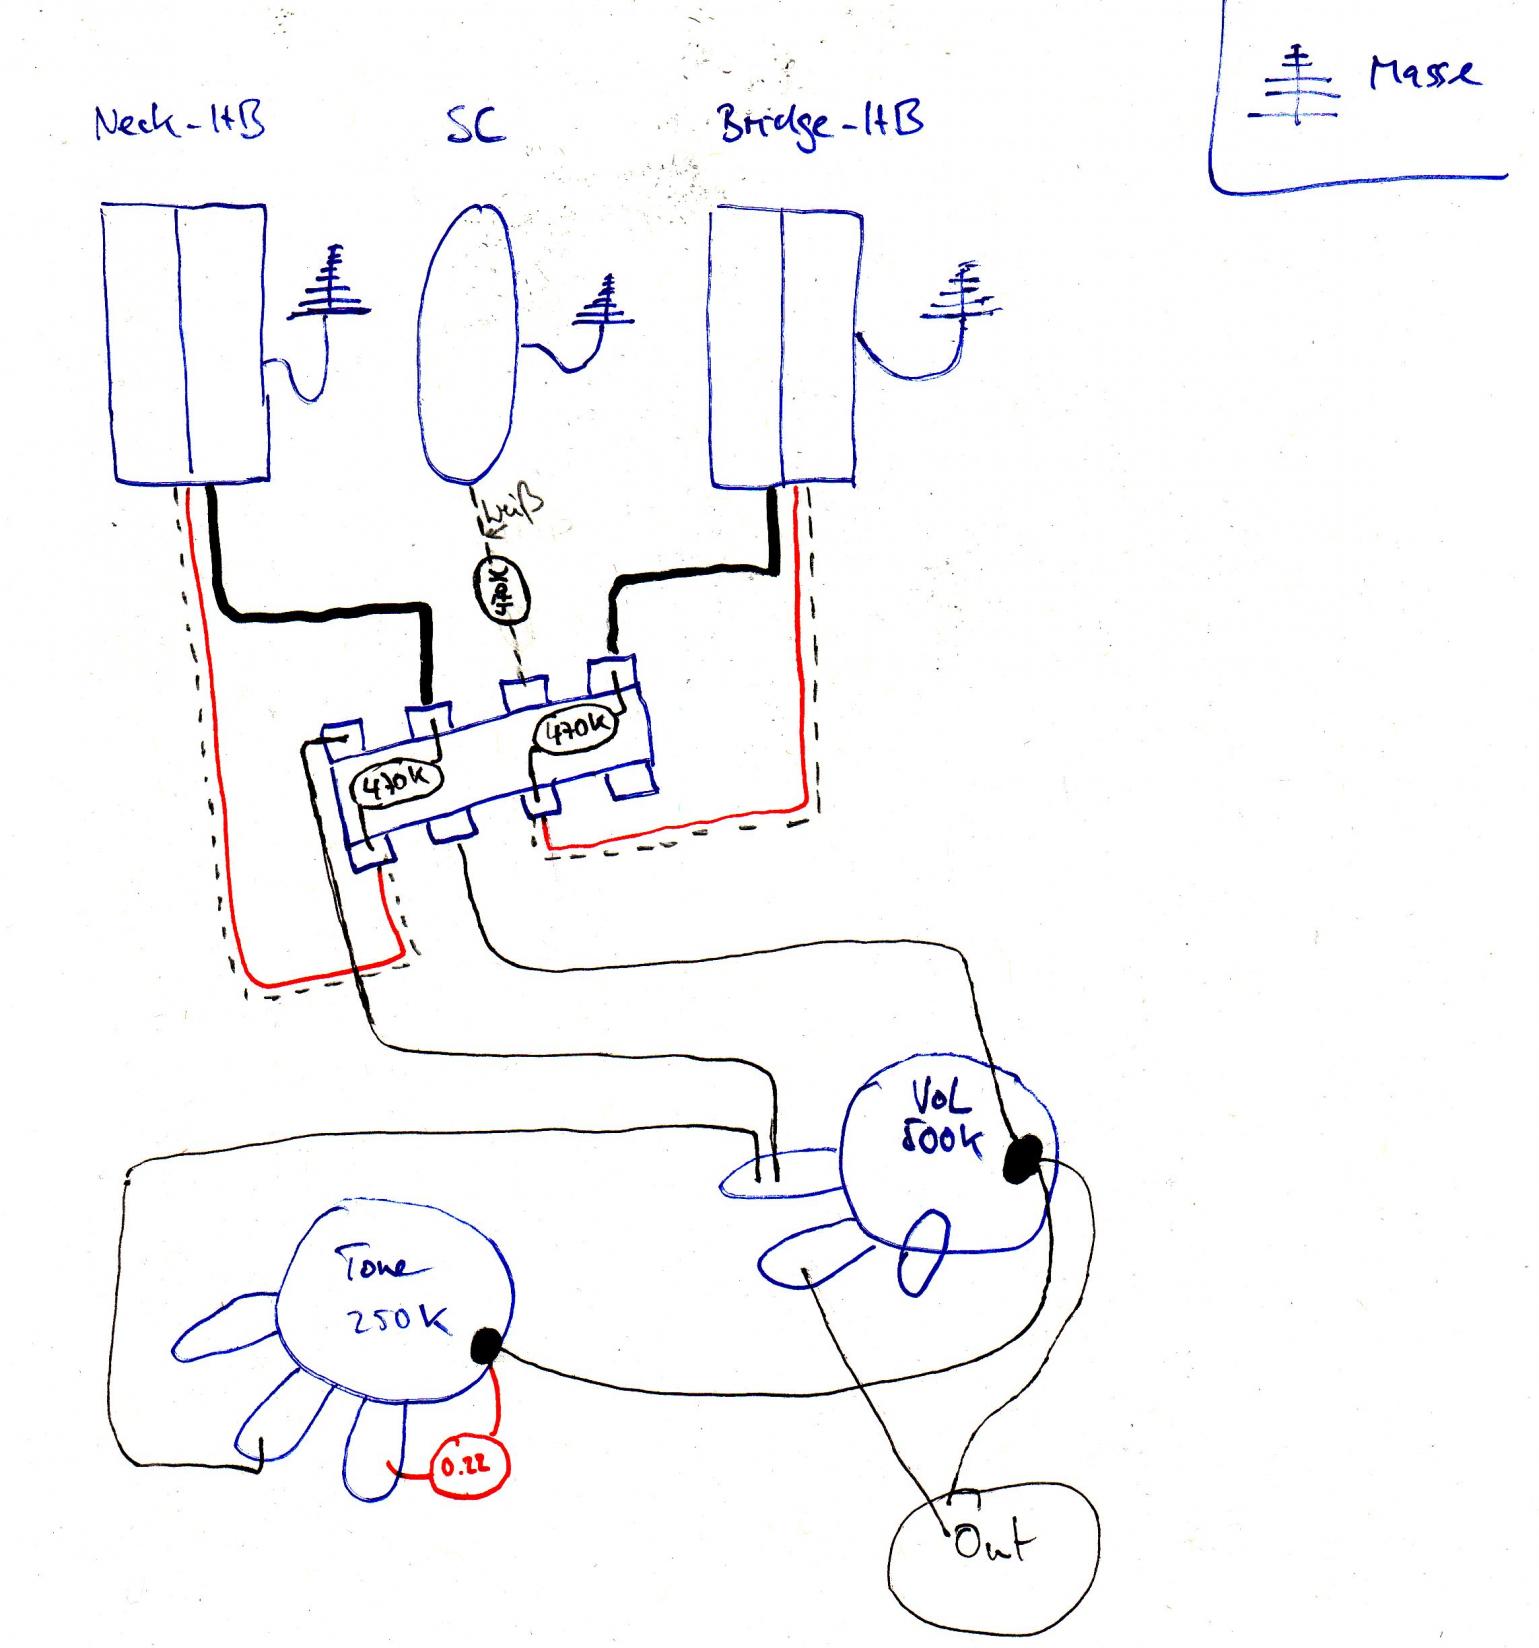 Masse
Neck-HB
SC
Bridge-HB
weiß
470K
470K
470K
VOL
500K
Tone
250K
0.22
Out